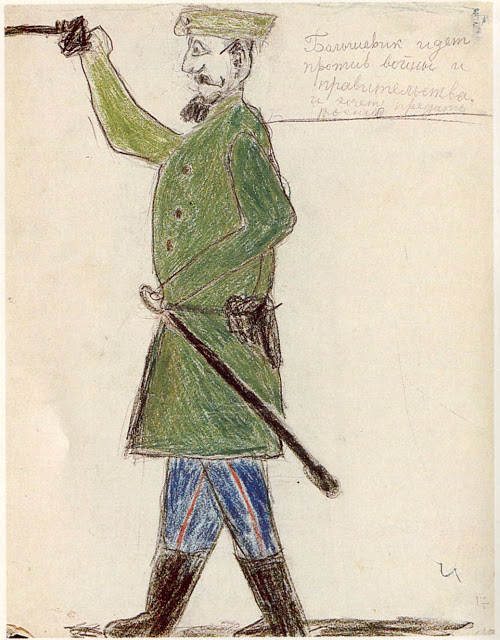 Большевик идет
против войны и
правительства.
и хочет предать
россию
и